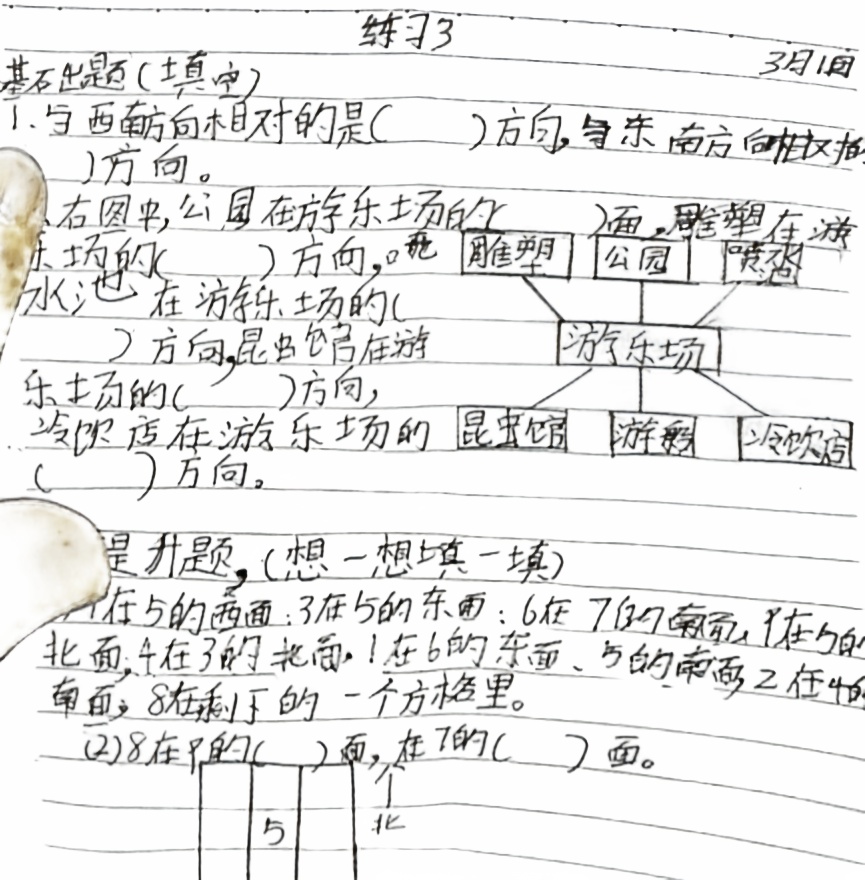 练习3
3月1日
基础题(填空)
1.与西南方向相对的是( )方向,与东南方向相对
)方向。
右图中,公园在游乐场的( )面,雕塑在游
乐场的( )方向,喷
水池在游乐场的(
)方向,昆虫馆在游
乐场的( )方向,
冷饮店在游乐场的
( )方向。
雕塑 公园 喷池
游乐场
昆虫馆 游 冷饮店
提升题,(想一想填一填)
7在5的西面;3在5的东面;6在7的南面,9在5的
北面;4在3的北面,1在6的东面、5的南面,2在4的
南面,8在剩下的一个方格里。
(2)8在9的( )面,在7的( )面。
5
北